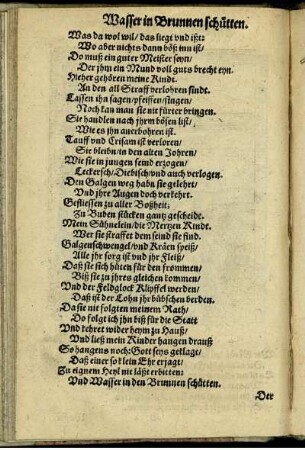 Wasser in Brunnen schütten.
Was da wol wil/ das liegt vnd ißt:
Wo aber nichts dann böß inn ist/
Do muß ein guter Meister seyn/
Der jhm ein Mund voll guts brecht eyn.
Hieher gehören meine Kindt.
An den all Straff verlohren sindt.
Lassen ihn sagen/ pfeiffen/ singen/
Noch kan man sie nit fürter bringen.
Sie handlen nach jhrm bösen list/
Wie es jhn anerbohren ist.
Tauff vnd Crisam ist verloren/
Sie bleibn/ in den alten Johren/
Wie sie in jungen seind erzogen/
Leckersch/ Diebisch/ vnd auch verlogen.
Den Galgen weg habn sie gelehrt/
Vnd jhre Augen doch verkehrt.
Geflissen zu aller Boßheit:
Zu Buben stücken gantz gescheidt.
Mein Sühnelein/ die Mertzen Kindt.
Wer sie straffet dem seind sie find.
Galgenschwengel/ vnd Kräen speiß/
Alle jhr sorg ist vnd jhr Fleiß/
Daß sie sich hüten für den frommen/
Biß sie zu jhres gleichen kommen/
Vnd der Feldglock Klipffel werden/
Daß ist der Lohn jhr hübschen berden.
Da sie nit folgten meinem Rath/
Do folgt ich jhn biß für die Statt
Vnd kehret wider heym zu Hauß/
Vnd ließ mein Kinder hangen drauß
So hangens noch: Gott seys geklagt/
Daß einer so klein Ehr erjagt/
Zu eignem Heyl nit läßt erbitten:
Vnd Wasser in den Brunnen schütten.
Der